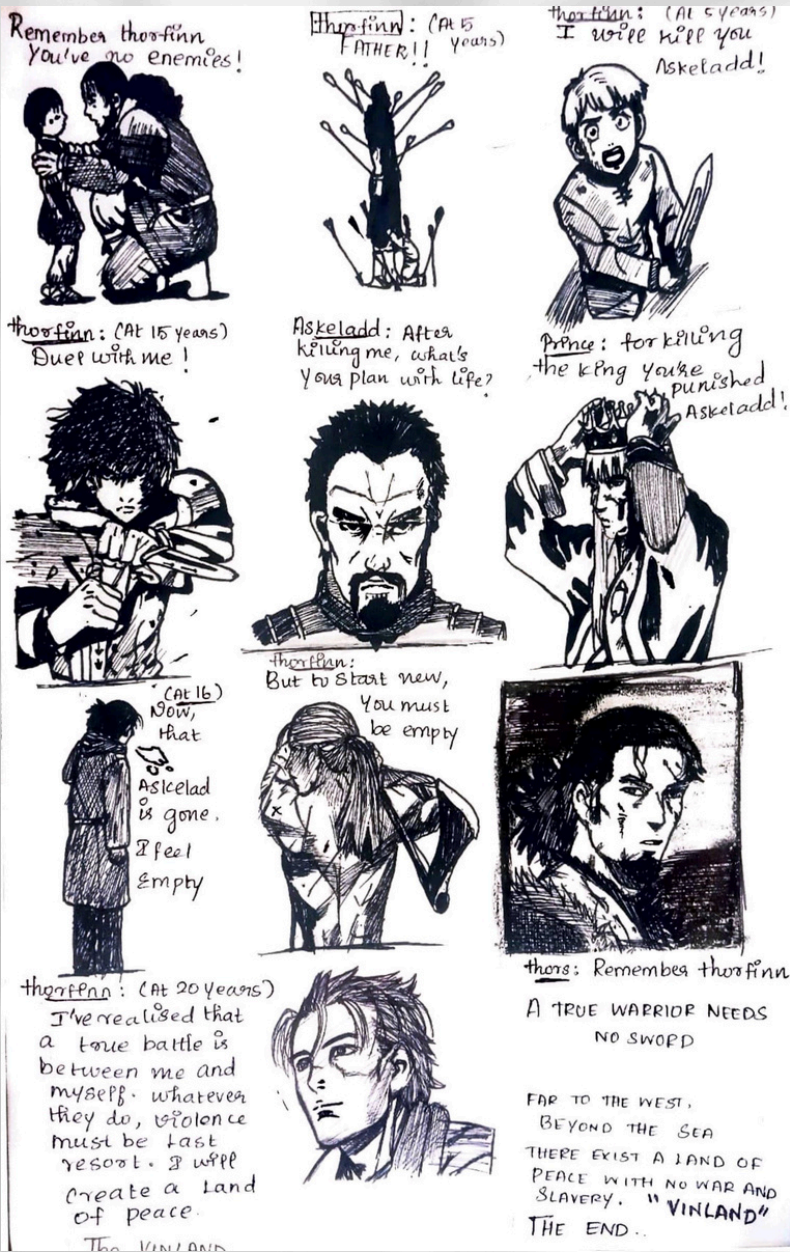 Remember thorfinn
You've no enemies!
thorfinn: (At 5
years)
FATHER!!
thorfinn: (At 5 years)
I will kill you
Askeladd!
thorfinn: (At 15 years)
Duel with me!
Askeladd: After
killing me, what's
your plan with life?
Prince: for killing
the king you're
punished
Askeladd!
(At 16)
Now,
that
Askelad
is gone.
I feel
Empty
thorfinn:
But to start new,
You must
be empty
thors: Remember thorfinn
A TRUE WARRIOR NEEDS
NO SWORD
thorfinn: (At 20 years)
I've realised that
a true battle is
between me and
myself. whatever
they do, violence
must be last
resort. I will
create a land
of peace.
The VINLAND
FAR TO THE WEST,
BEYOND THE SEA
THERE EXIST A LAND OF
PEACE WITH NO WAR AND
SLAVERY. "VINLAND"
THE END..